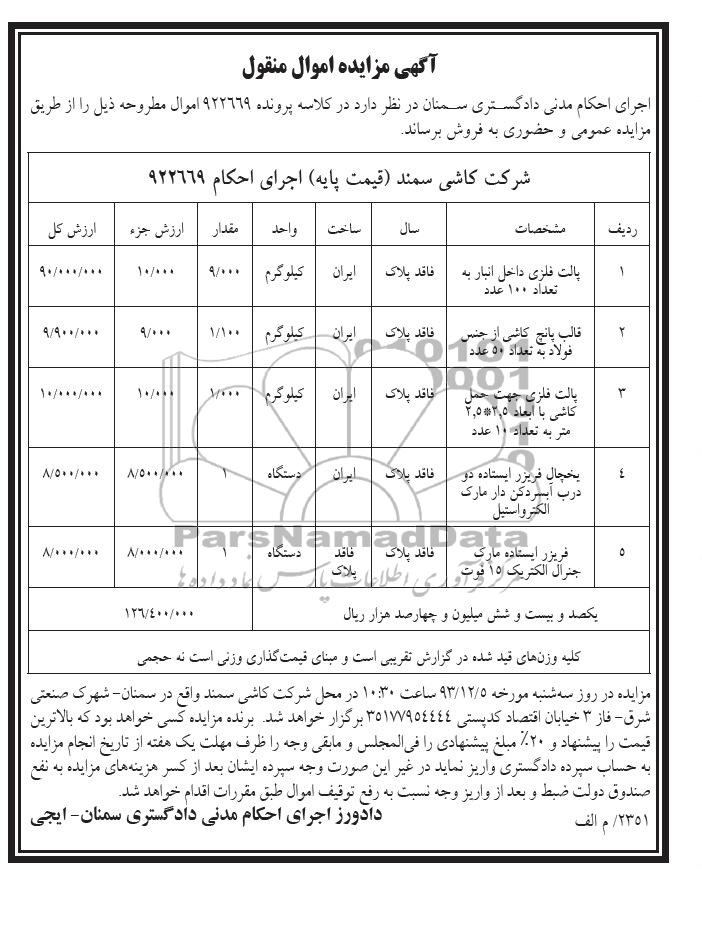 آگهی مزایده اموال منقول
اجرای احکام مدنی دادگستری سمنان در نظر دارد در کلاسه پرونده ۹۲۲۶۶۹ اموال مطروحه ذیل را از طریق
مزایده عمومی و حضوری به فروش برساند.
شرکت کاشی سمند (قیمت پایه) اجرای احکام ۹۲۲۶۶۹
ردیف مشخصات سال ساخت واحد مقدار ارزش جزء ارزش کل
۱ پالت فلزی داخل انبار به فاقد پلاک ایران کیلوگرم ۹/۰۰۰ ۱۰/۰۰۰ ۹۰/۰۰۰/۰۰۰
تعداد ۱۰۰ عدد
۲ قالب پانچ کاشی از جنس فاقد پلاک ایران کیلوگرم ۱/۱۰۰ ۹/۰۰۰ ۹/۹۰۰/۰۰۰
فولاد به تعداد ۵۰ عدد
۳ پالت فلزی جهت حمل فاقد پلاک ایران کیلوگرم ۱/۰۰۰ ۱۰/۰۰۰ ۱۰/۰۰۰/۰۰۰
کاشی با ابعاد ۲,۵*۲,۵
متر به تعداد ۱۰ عدد
۴ یخچال فریزر ایستاده دو فاقد پلاک ایران دستگاه ۱ ۸/۵۰۰/۰۰۰ ۸/۵۰۰/۰۰۰
درب آبسردکن دار مارک
الکترواستیل
۵ فریزر ایستاده مارک فاقد پلاک فاقد دستگاه ۱ ۸/۰۰۰/۰۰۰ ۸/۰۰۰/۰۰۰
جنرال الکتریک ۱۵ فوت پلاک
یکصد و بیست و شش میلیون و چهارصد هزار ریال ۱۲۶/۴۰۰/۰۰۰
کلیه وزن‌های قید شده در گزارش تقریبی است و مبنای قیمت‌گذاری وزنی است نه حجمی
مزایده در روز سه‌شنبه مورخه ۹۳/۱۲/۵ ساعت ۱۰:۳۰ در محل شرکت کاشی سمند واقع در سمنان- شهرک صنعتی
شرق- فاز ۳ خیابان اقتصاد کدپستی ۳۵۱۷۷۹۵۴۴۴۴ برگزار خواهد شد. برنده مزایده کسی خواهد بود که بالاترین
قیمت را پیشنهاد و ۲۰٪ مبلغ پیشنهادی را فی‌المجلس و مابقی وجه را ظرف مهلت یک هفته از تاریخ انجام مزایده
به حساب سپرده دادگستری واریز نماید در غیر این صورت وجه سپرده ایشان بعد از کسر هزینه‌های مزایده به نفع
صندوق دولت ضبط و بعد از واریز وجه نسبت به رفع توقیف اموال طبق مقررات اقدام خواهد شد.
دادورز اجرای احکام مدنی دادگستری سمنان- ایجی
۲۳۵۱/ م الف
ParsNamadData
مرکز فرآوری اطلاعات پارس نماد داده‌ها